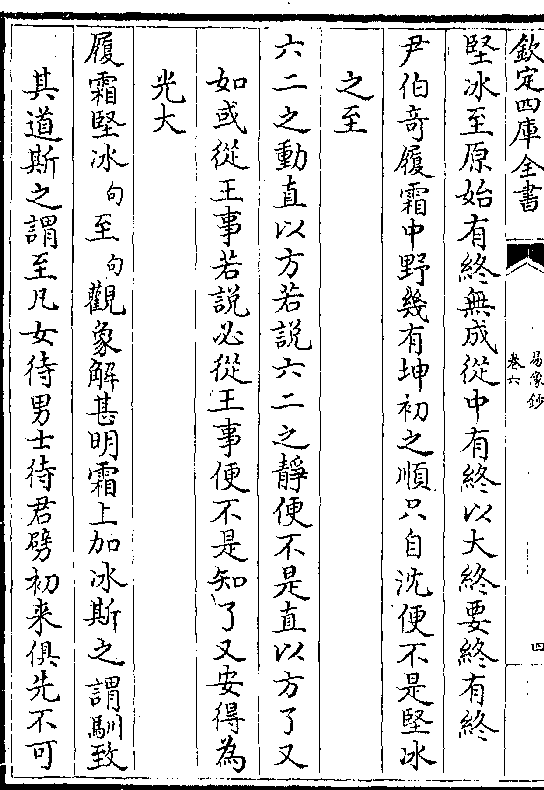 欽定四庫全書
易像鈔
卷六
四
堅冰至原始有終無成從中有終以大終要終有終
尹伯奇履霜中野幾有坤初之順只自沈便不是堅冰
之至
六二之動直以方若說六二之靜便不是直以方了又
如或從王事若說必從王事便不是知了又安得為
光大
履霜堅冰句至句觀象解甚明霜上加冰斯之謂馴致
其道斯之謂至凡女待男士待君劈初来俱先不可